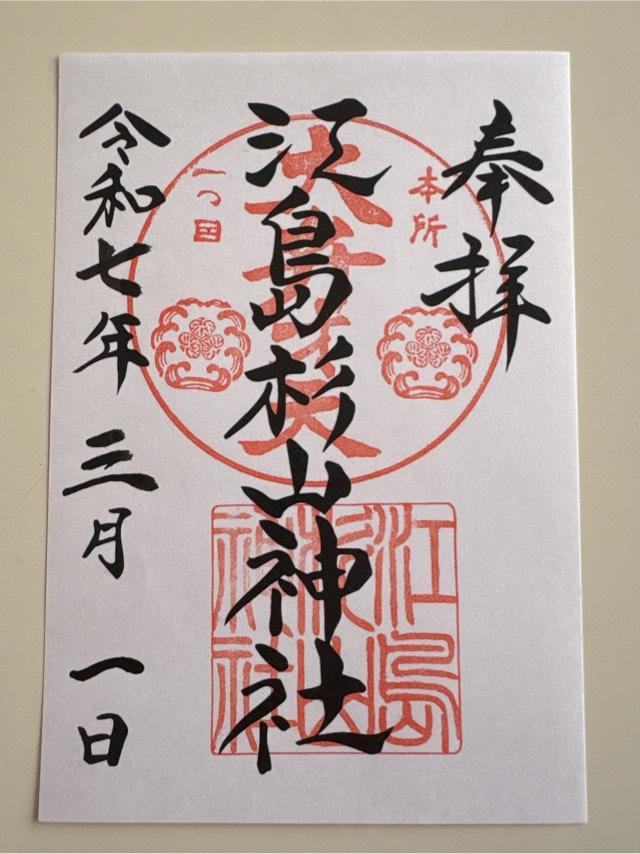 奉拝
本所
一つ目
江島杉山神社
江島杉山神社
令和七年三月一日